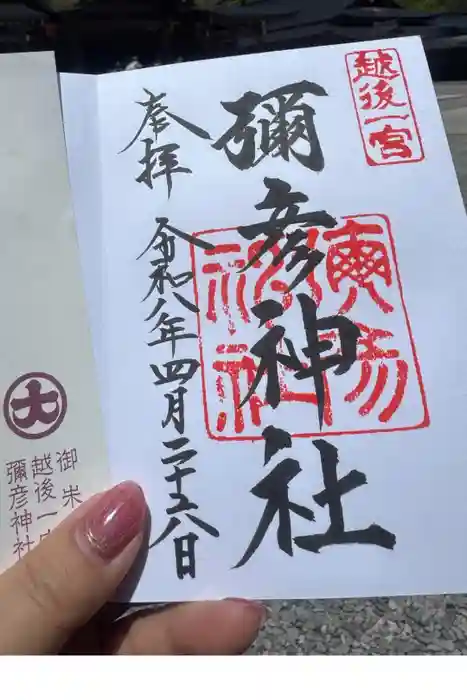 越後一宮
彌彦神社
奉拝
令和八年四月二十六日
大
御米
越後一宮
彌彦神社